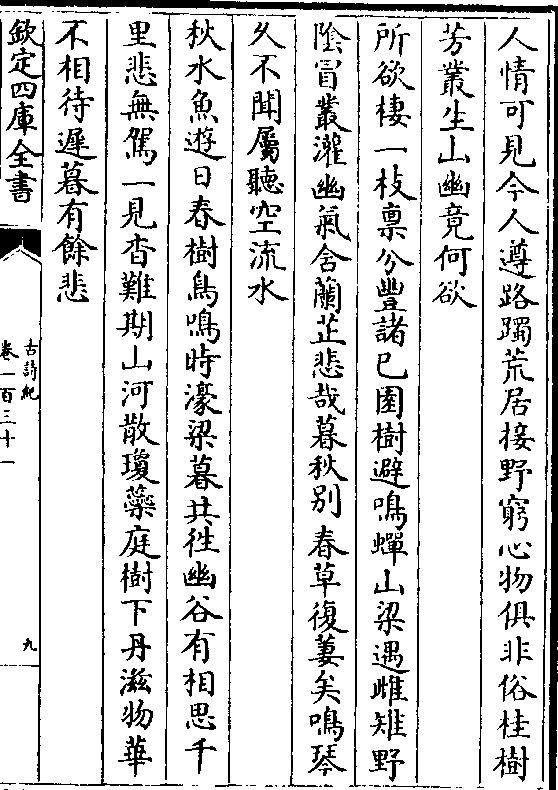 人情可見今人遵路躅荒居接野窮心物俱非俗桂樹
芳叢生山幽竟何欲
所欲棲一枝禀分豐諸已園樹避鳴蟬山梁遇雌雉野
陰冒叢灌幽氣含蘭芷悲哉暮秋别春草復萋矣鳴琴
久不聞屬聽空流水
秋水魚遊日春樹鳥鳴時濠梁暮共徃幽谷有相思千
里悲無駕一見杳難期山河散瓊蘂庭樹下丹滋物華
不相待遲暮有餘悲
欽定四庫全書
古詩紀
卷一百三十一
九